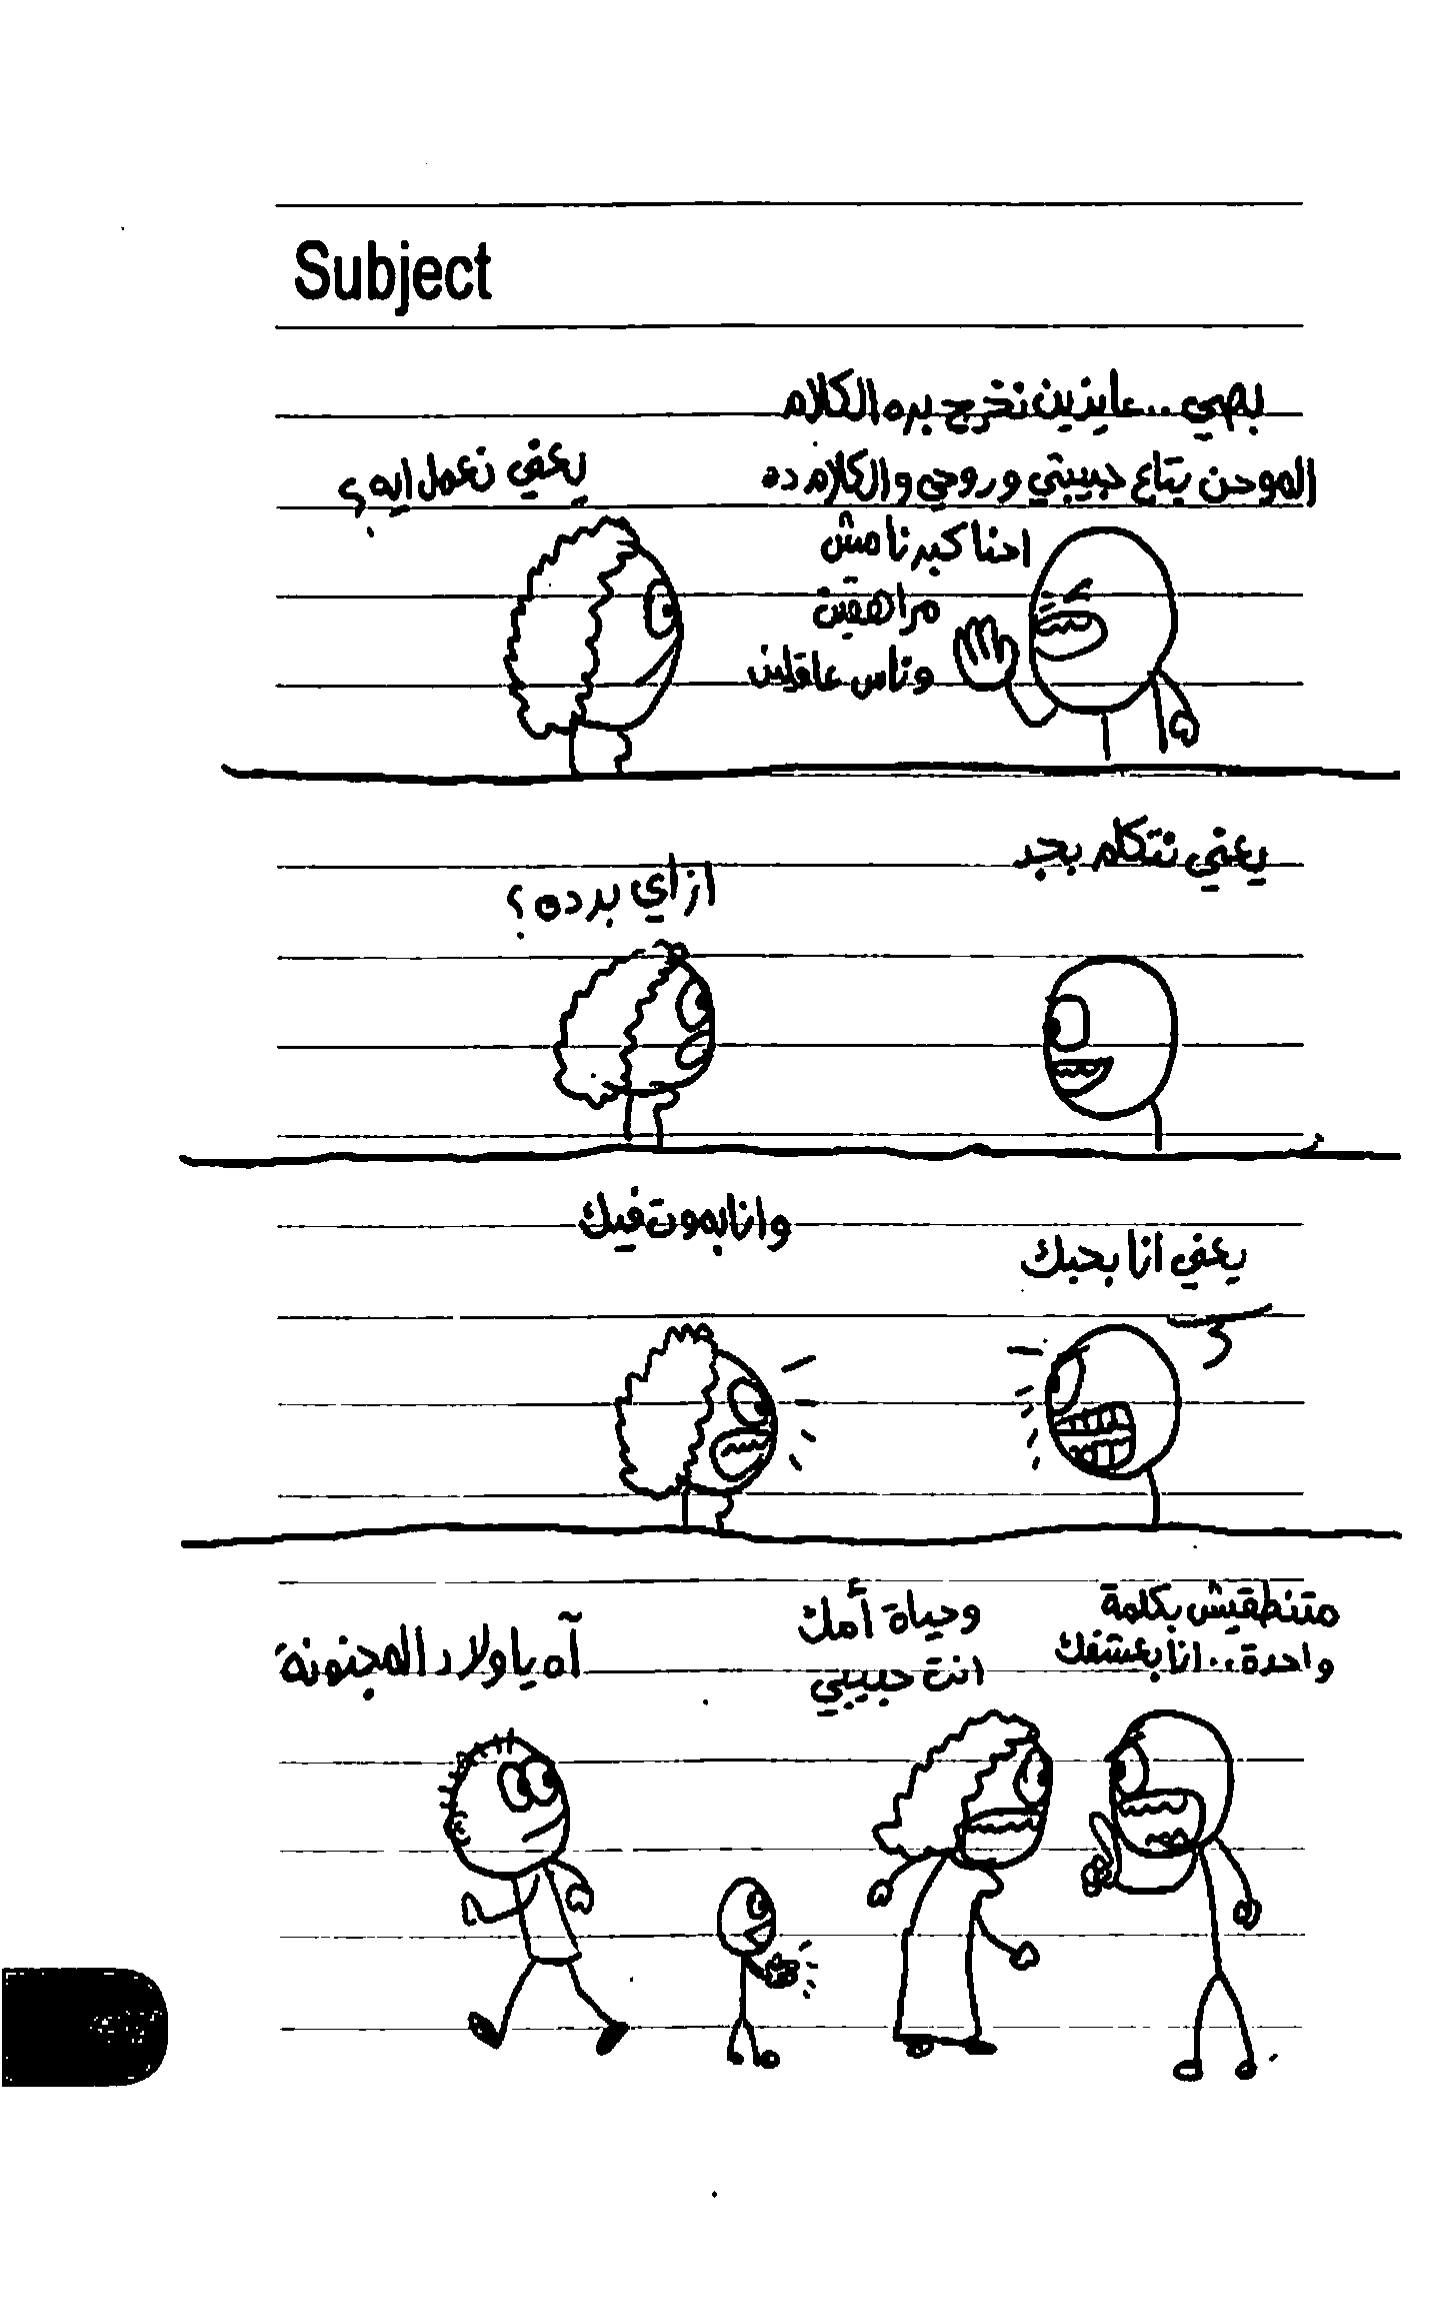 Subject
بصي.. عايزين نخرج بره الكلام
الموحن بتاع حبيبتي وروحي والكلام ده
احنا كبرنا مش
مراهقين
وناس عاقلين
يعني نعمل ايه؟
يعني نتكلم بجد
ازاي برده؟
يعني انا بحبك
وانا بموت فيك
متنطقيش بكلمة
واحدة.. انا بعشقك
وحياة أمك
انت حبيبي
آه يا ولاد المجنونة